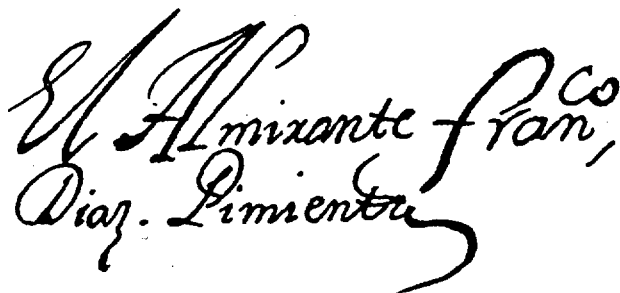 El Almirante franco,
Diaz. Pimienta